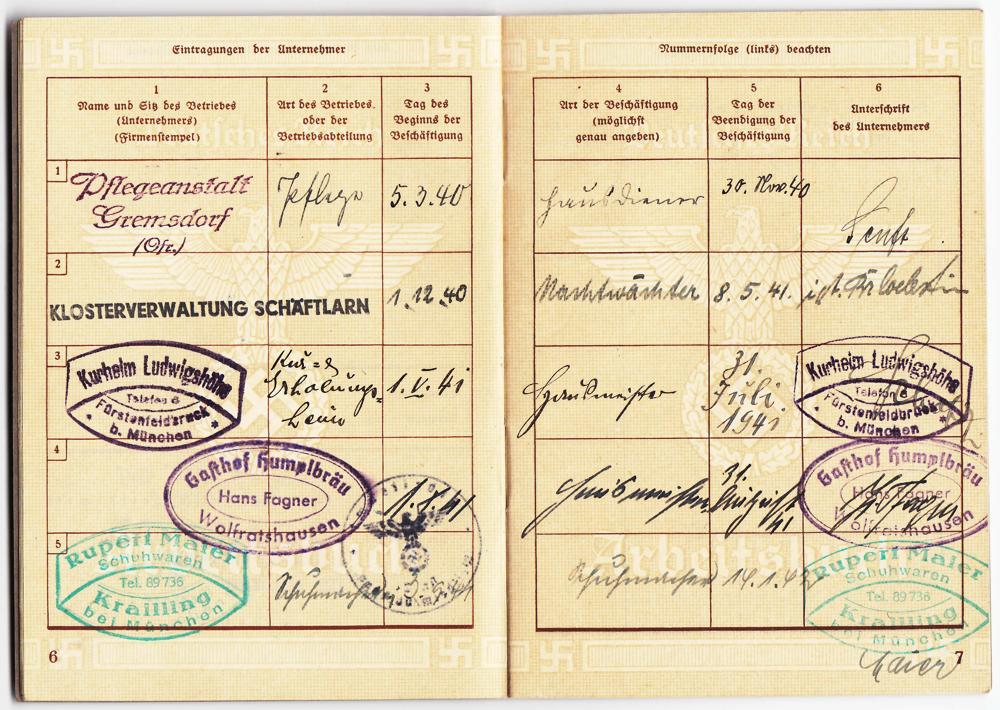 Eintragungen der Unternehmer
1
Name und Sitz des Betriebes
(Unternehmers)
(Firmenstempel)
2
Art des Betriebes
oder der
Betriebsabteilung
3
Tag des
Beginns der
Beschäftigung
1
Pflegeanstalt
Gremsdorf
(Ofr.)
Pflege
5.3.40
2
KLOSTERVERWALTUNG SCHÄFTLARN
1.12.40
3
Kurheim Ludwigshöhe
Telefon 8
Fürstenfeldbruck
b. München
Kur= &
Erholungs=
heim
1. V. 41
4
Gasthof Humplbräu
Hans Fagner
Wolfratshausen
5
Rupert Maier
Schuhwaren
Tel. 89736
Krailling
bei München
Schuhmacher
6
Nummernfolge (links) beachten
4
Art der Beschäftigung
(möglichst
genau angeben)
5
Tag der
Beendigung der
Beschäftigung
6
Unterschrift
des Unternehmers
Hausdiener
30. Nov. 40
Senft
Nachtwächter
8. 5. 41.
Hausmeister
31.
Juli
1941
Kurheim Ludwigshöhe
Telefon 8
Fürstenfeldbruck
b. München
Hausmeister
31.
August
41
Gasthof Humplbräu
Hans Fagner
Wolfratshausen
Schuhmacher
14.1.42
Rupert Maier
Schuhwaren
Tel. 89736
Krailling
bei München
Maier
7
Arbeitsbuch